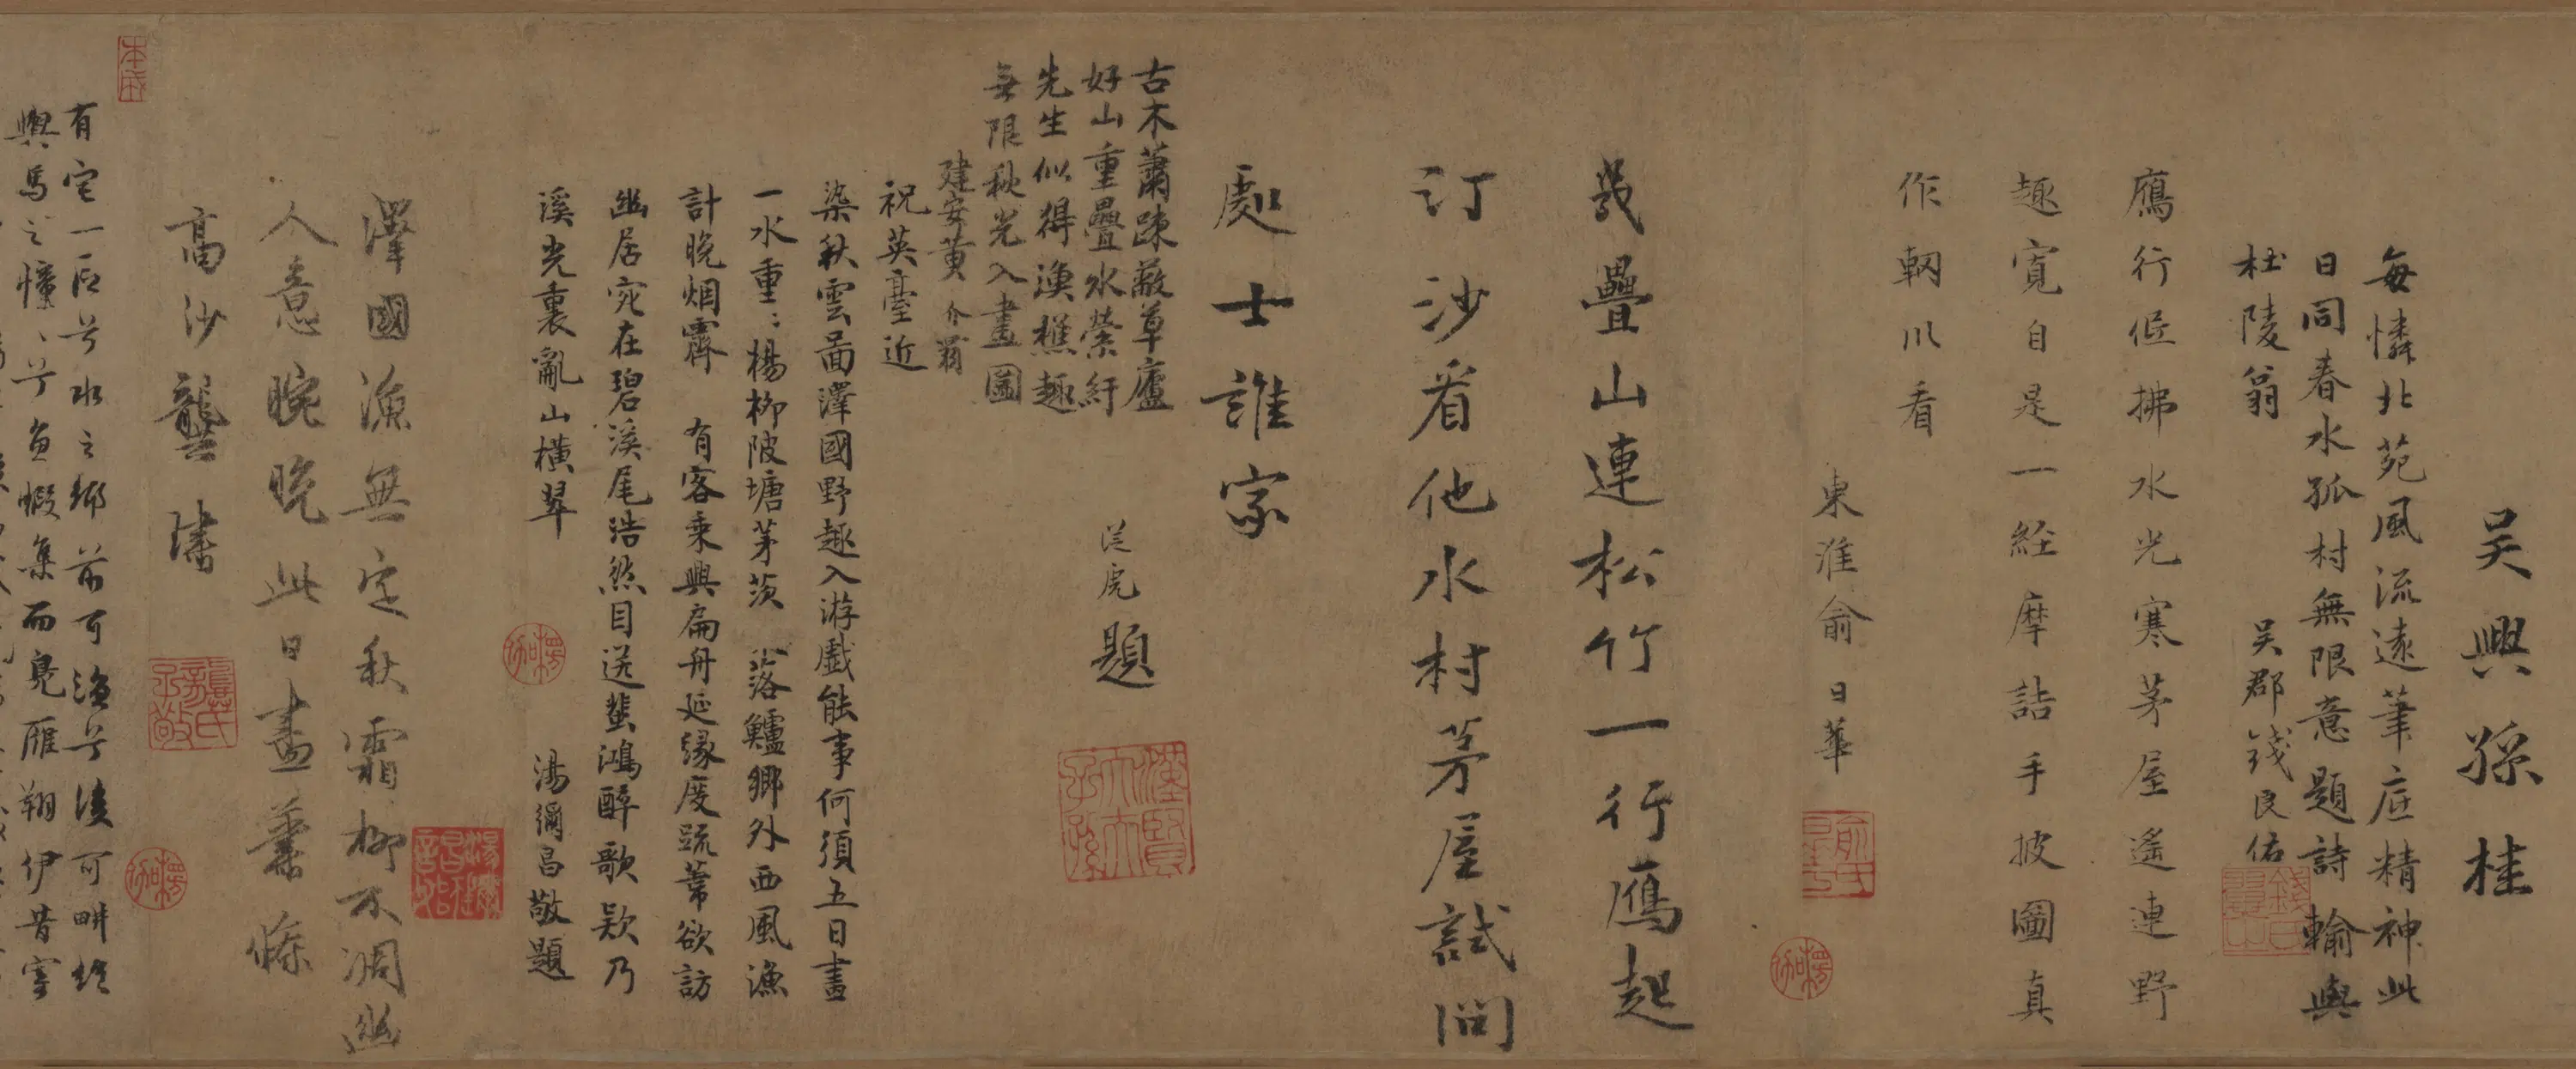 吴興孫桂
每憐北苑風流遠筆底精神此
日同春水孤村無限意題詩輸與
杜陵翁
吴郡錢良佑
鴈行低拂水光寒茅屋遙連野
趣寛自是一経摩詰手披圖真
作輞川看
東淮俞日華
幾疊山連松竹一行鴈起
汀沙看他水村茅屋試問
處士誰家
從虎題
古木蕭踈蔽草廬
好山重疊水縈紆
先生似得漁樵趣
無限秋光入畫圖
建安黄介翁
祝英臺近
染秋雲啚澤國野趣入游戲能事何須五日畫
一水重〻楊柳陂塘茅茨 落鱸鄉外西風漁
計晚烟霽 有客乘興扁舟延縁度䟽葦欲訪
幽居宛在碧溪尾浩然目送蜚鴻醉歌欵乃
溪光裏亂山橫翠
湯彌昌敬題
澤國漁無定秋霜柳不凋幽
人意晼晚此日畫蕭條
高沙龔璛
有宅一區兮水之鄉前可漁兮後可畊绝
輿馬之憧〻兮魚蝦集而鳧雁翔伊昔寄